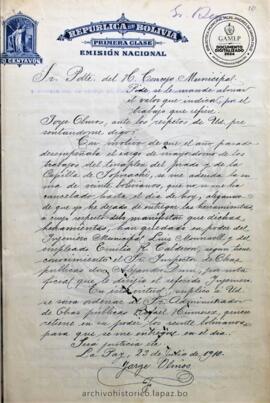 REPÚBLICA DE BOLIVIA
PRIMERA CLASE
EMISIÓN NACIONAL
CENTAVOS
GAMLP
DOCUMENTO
DIGITALIZADO
2024
Sr. Pdte. del H. Concejo Municipal.
Pide se le mande abonar
el valor que indica, por el
trabajo que
Jorge Olmos, ante los respetos de Ud. pre
sentándome digo:
Con motivo de que el año pasado
desempeñaba el cargo de
trabajos del del prado y de la
Capilla de Sopocachi, se me adeuda la su
ma de veinte bolivianos, que no se me ha
cancelado hasta el día de hoy,
do de que yo he dejado de entregar las herramientas,
a cuyo respecto debo manifestar que dichas
herramientas, han quedado en poder del
Ingeniero Municipal Luis y del
empleado R. Calderon, según tiene
conocimiento el Sr. Inspector de Obras
públicas don Alejandro por nota
oficial que le dirijió el referido Ingeniero.
En esta virtud, suplico a Ud.
se sirva ordenar al Sr. Administrador
de Obras públicas Rafael quien
retiene en su poder los veinte bolivianos
para que se me entregue en el día.
Será justicia etc.
La Paz, 23 de 1910.
Jorge Olmos
archivohistorico.lapaz.bo